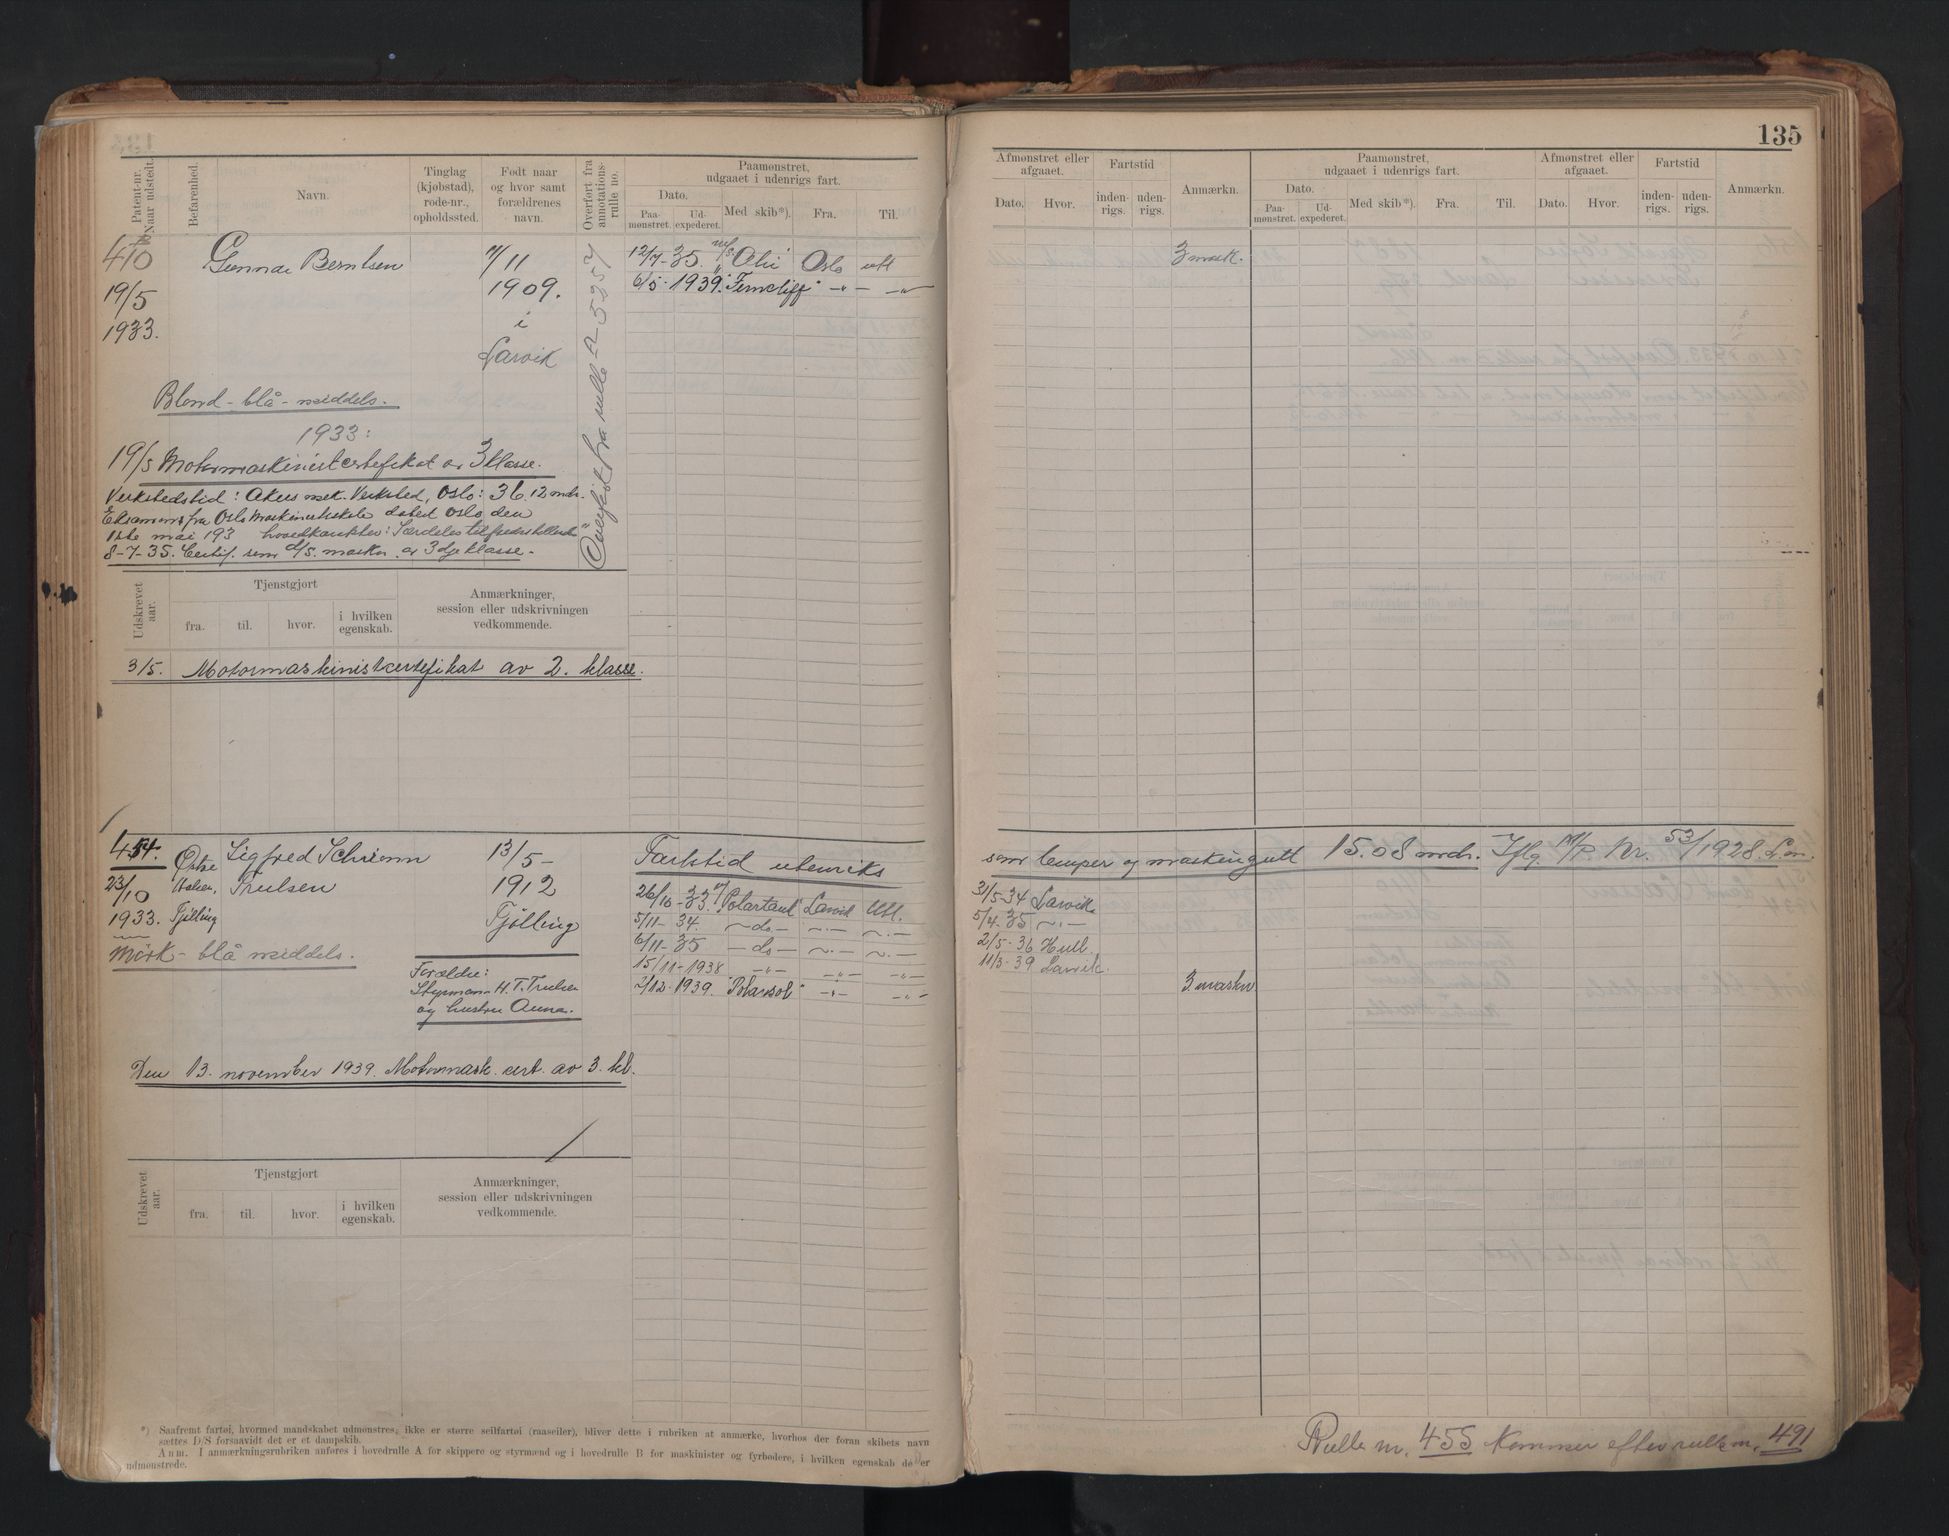 135
Patent-nr. Naar udstedt.
Befarenhed.
Navn.
Tinglag (kjøbstad), rode-nr., opholdssted.
Født naar og hvor samt forældrenes navn.
Overført fra annotations-rulle no.
Paamønstret, udgaaet i udenrigs fart.
Dato.
Paa-mønstret. Ud-expederet.
Med skib*). Fra. Til.
Afmønstret eller afgaaet.
Dato. Hvor.
Fartstid
inden-rigs. uden-rigs.
Anmærkn.
Paamønstret, udgaaet i udenrigs fart.
Dato.
Paa-mønstret. Ud-expederet.
Med skib*). Fra. Til.
Afmønstret eller afgaaet.
Dato. Hvor.
Fartstid
inden-rigs. uden-rigs.
Anmærkn.
410 Gunnar Berntsen 11/11 12/7-35. m/s Oslo utl 3 mask.
19/5 1909. 6/5-1939. "Ferncliff" -"- -"-
1933. i
Larvik
Overført fra rulle A-5257
Blond - blå - middels.
1933:
19/5 Motormaskinistcertefikat av 3 klasse.
Verkstedstid: Akers mek. Verksted, Oslo: 36.12 mdr.
Eksamen fra Oslo Maskinistskole datert Oslo den
1ste mai 193 hovedkarakter: Særdeles tilfredsstillende
8-7-35. Certif. som d/s. maskn. av 3dje klasse.
Udskrevet aar.
Tjenstgjort
fra. til. hvor. i hvilken egenskab.
Anmærkninger, session eller udskrivningen vedkommende.
3/5. Motormaskinistcertefikat av 2. klasse.
454. Østre Sigfred Schrienn 13/5- Fartstid utenriks som lemper og maskingutt 15.08 mdr. Iflg. M/P. Nr. 53/1928 L.m.
23/10 Halsen, Trulsen 1912 26/10-33. "Polartank" Larvik Utl. 31/5-34 Larvik
1933. Tjølling Tjølling 5/11-34. -do- -"- -"- 5/4-35 -"-
6/11-35 -do- -"- -"- 2/5-36 Hull.
Mörk - blå middels. 15/11-1938 -"- -"- -"- 11/3-39 Larvik.
Forældre: 2/12-1939. "Polarsol" -"- -"- 3. maskn.
Styrmann H. T. Trulsen
og hustru Anna.
Den 13. november 1939. Motormask. cert. av 3. kl.
Udskrevet aar.
Tjenstgjort
fra. til. hvor. i hvilken egenskab.
Anmærkninger, session eller udskrivningen vedkommende.
*) Saafremt fartøi, hvormed mandskabet udmønstres, ikke er større seilfartøi (raaseiler), bliver dette i rubriken at anmerke, hvorhos der foran skibets navn
sættes D/S forsaavidt det er et dampskib.
Anm. I anmærkningsrubriken anføres i hovedrulle A for skippere og styrmænd og i hovedrulle B for maskinister og fyrbødere, i hvilken egenskab de er
udmønstrede.
Rulle nr. 455 kommer efter rulle nr. 491